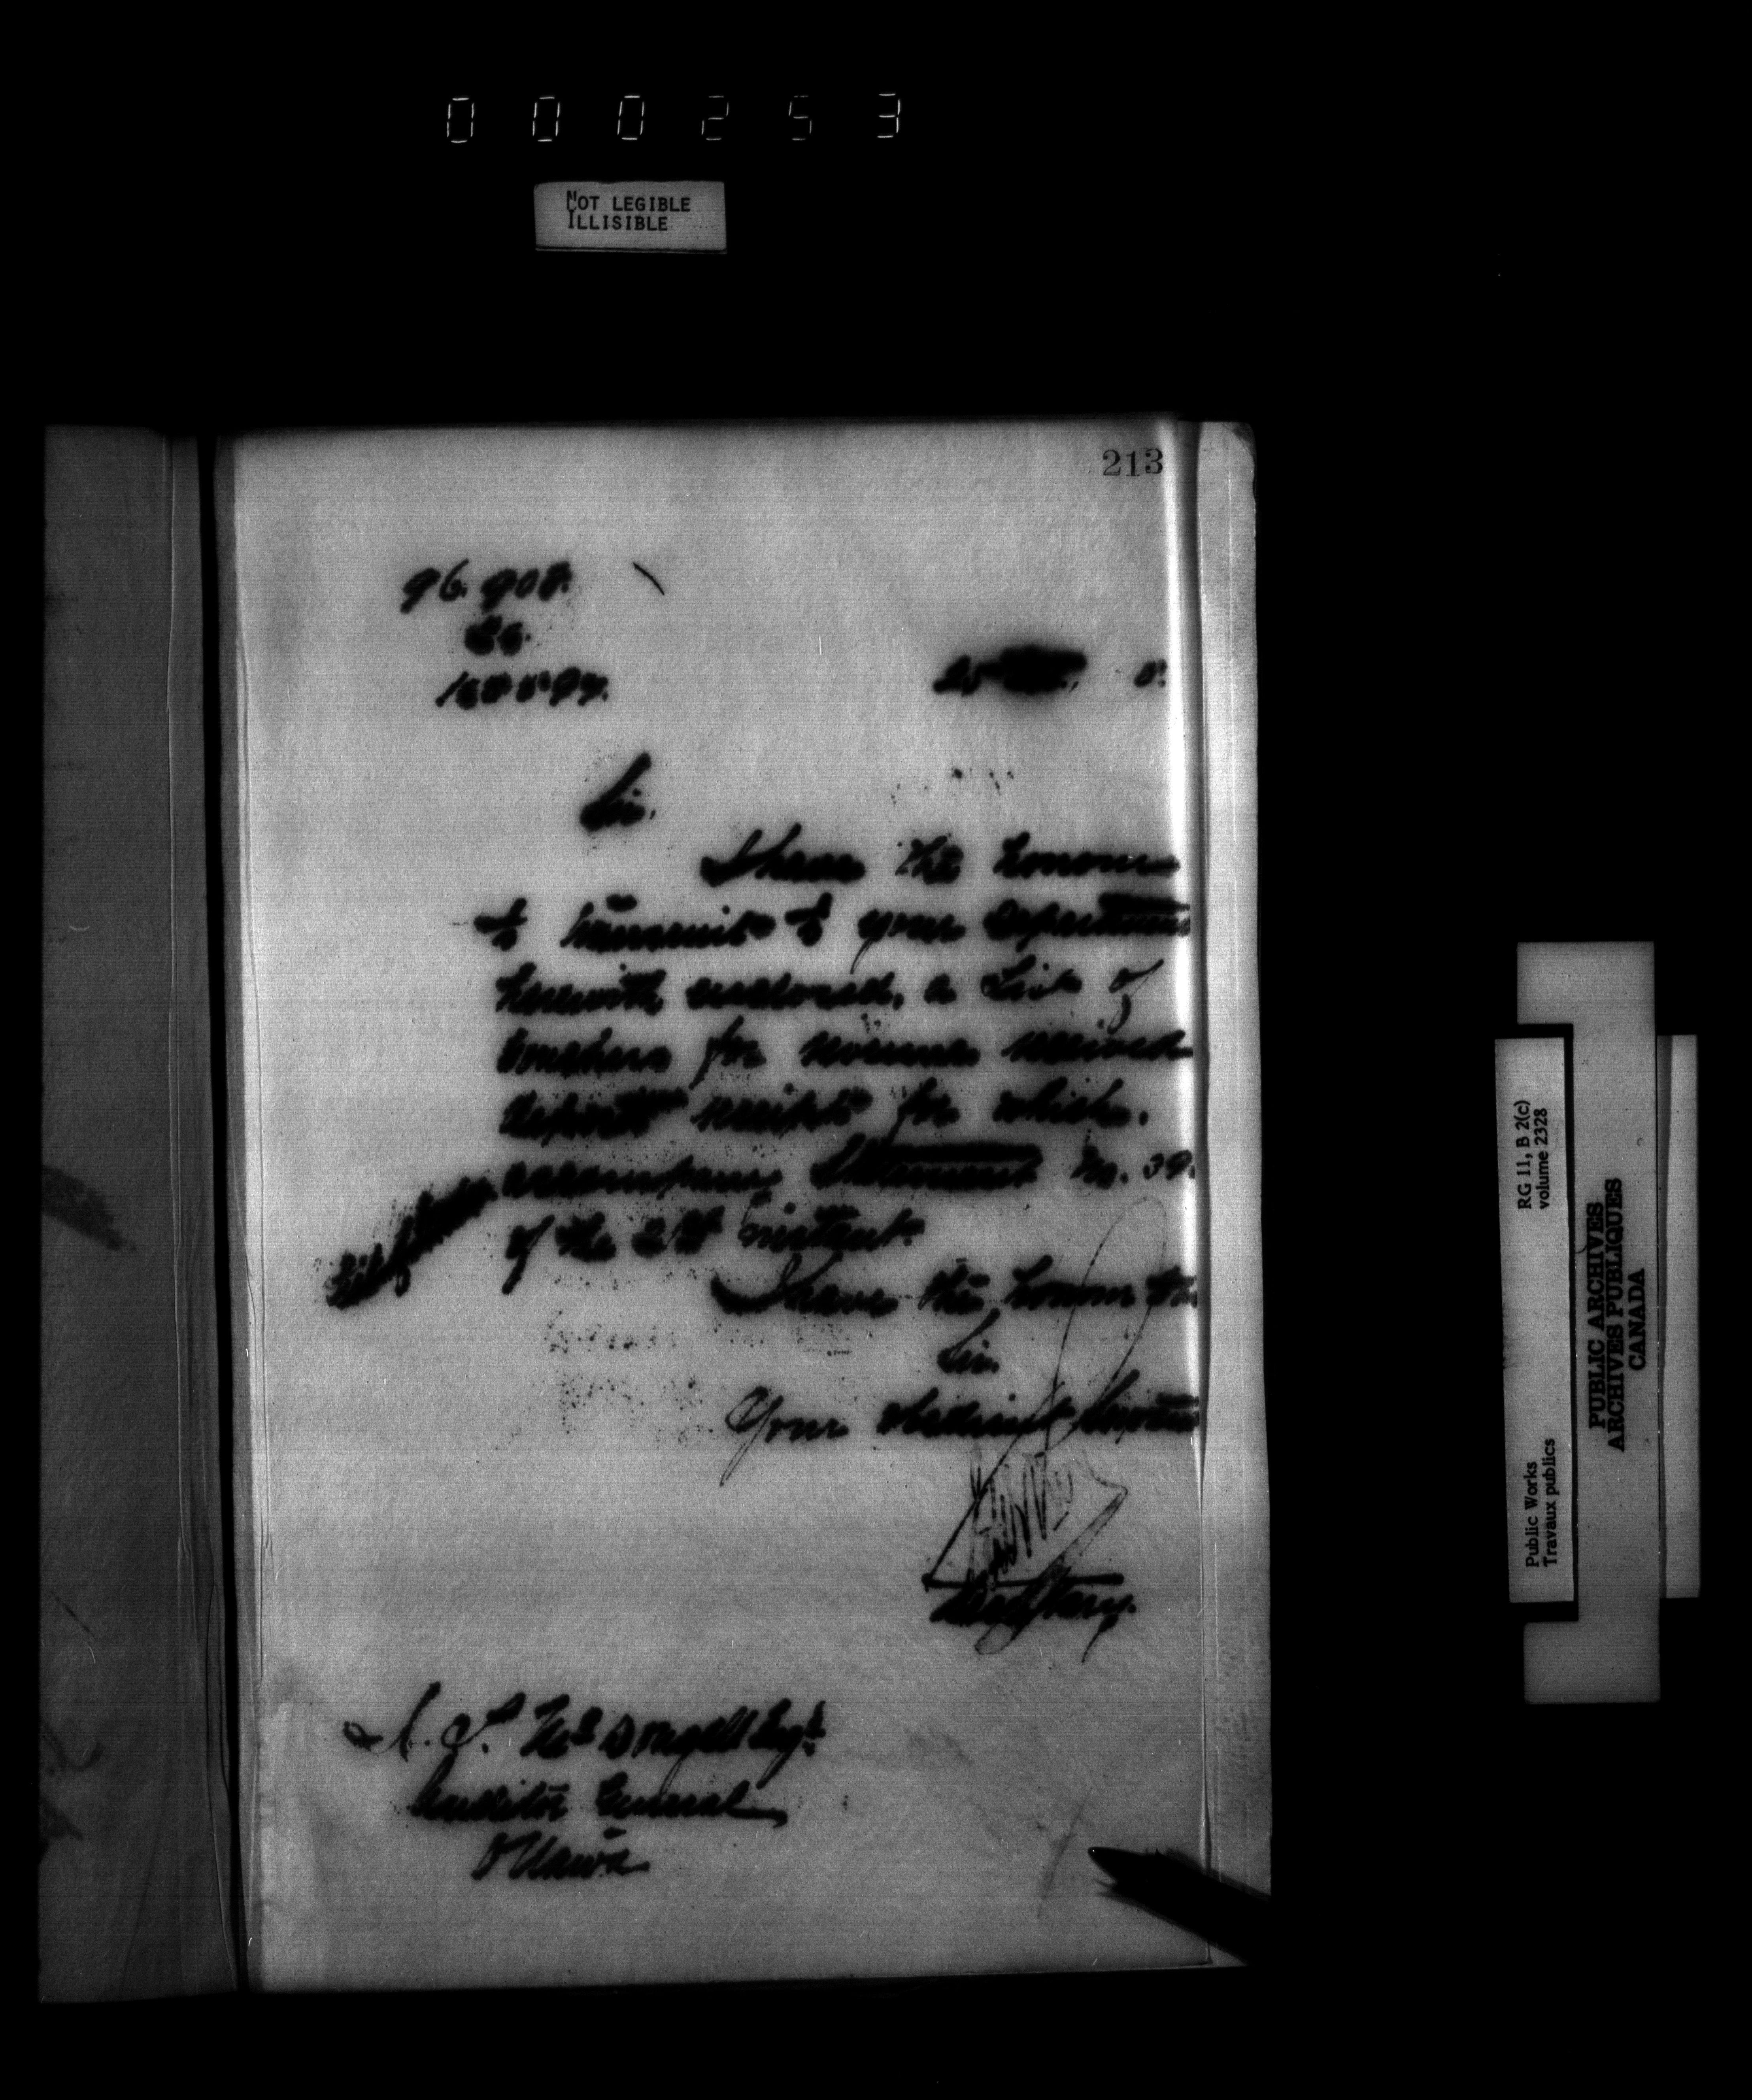 000253
NOT LEGIBLE
ILLISIBLE
213
96.908.
Sir.
I have the honour
to transmit to your Department
herewith enclosed, a List of
vouchers for revenue received
deposit receipts for which
accompany Statement No. 39.
of the 21st instant.
I have the honour to be
Sir.
Your obedient Servant
Secretary.
J. L. McDougall Esqr.
Auditor General
Ottawa
RG 11, B 2(c)
volume 2328
Public Works
Travaux publics
PUBLIC ARCHIVES
ARCHIVES PUBLIQUES
CANADA